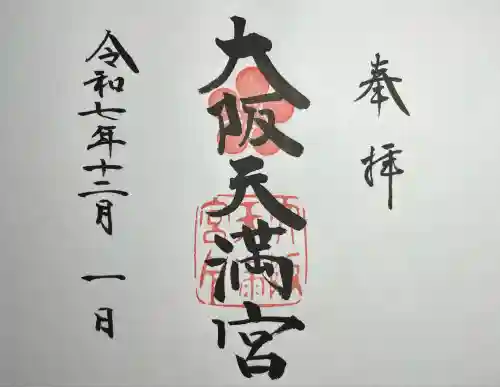 奉拝
大阪天満宮
令和七年十二月一日